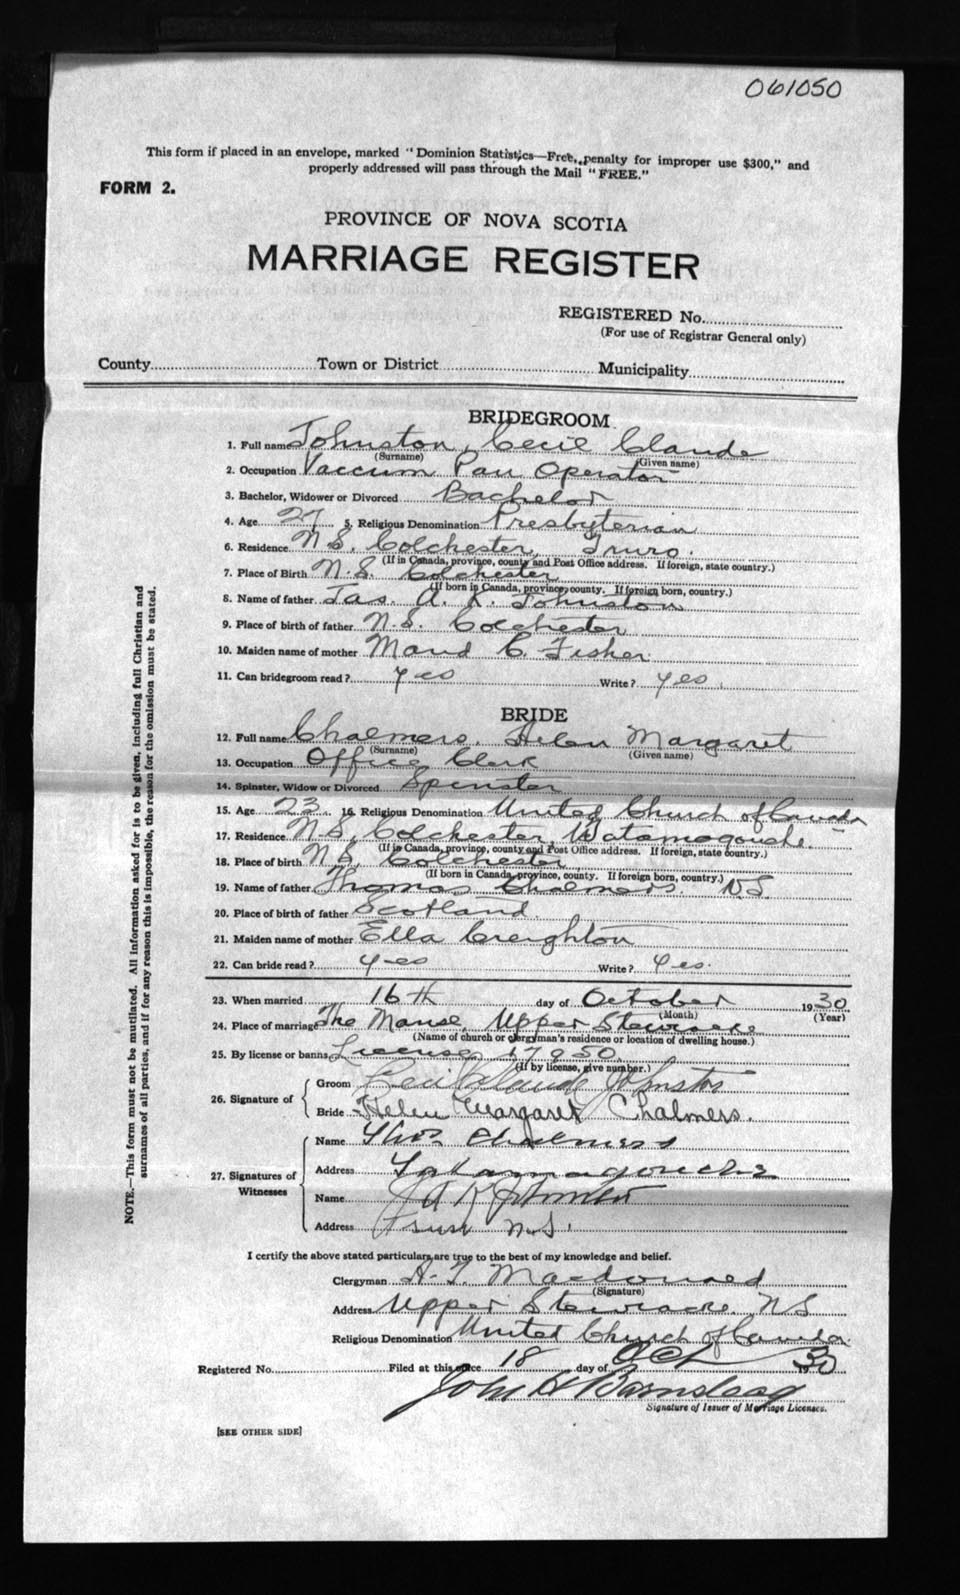 061050
This form if placed in an envelope, marked "Dominion Statistics—Free, penalty for improper use $300," and
properly addressed will pass through the Mail "FREE."
FORM 2.
PROVINCE OF NOVA SCOTIA
MARRIAGE REGISTER
REGISTERED No.
(For use of Registrar General only)
County Town or District Municipality
BRIDEGROOM
1. Full name Johnston, Cecil Claude
(Surname) (Given name)
2. Occupation Vaccum Pan Operator
3. Bachelor, Widower or Divorced Bachelor
4. Age 27 5. Religious Denomination Presbyterian
6. Residence N.S. Colchester, Truro.
(If in Canada, province, county and Post Office address. If foreign, state country.)
7. Place of Birth N.S. Colchester
(If born in Canada, province, county. If foreign born, country.)
8. Name of father Jas. A. K. Johnston
9. Place of birth of father N.S. Colchester
10. Maiden name of mother Maud C. Fisher
11. Can bridegroom read? yes Write? yes.
BRIDE
12. Full name Chalmers, Helen Margaret
(Surname) (Given name)
13. Occupation Office Clerk
14. Spinster, Widow or Divorced Spinster
15. Age 23. 16. Religious Denomination United Church of Canada
17. Residence N.S. Colchester, Tatamagouche.
(If in Canada, province, county and Post Office address. If foreign, state country.)
18. Place of birth N.S. Colchester
(If born in Canada, province, county. If foreign born, country.)
19. Name of father Thomas Chalmers. N.S.
20. Place of birth of father Scotland.
21. Maiden name of mother Ella Creighton
22. Can bride read? yes Write? Yes.
23. When married 16th day of October 1930
(Month) (Year)
24. Place of marriage The Manse, Upper Stewiacke
(Name of church or clergyman's residence or location of dwelling house.)
25. By license or banns License
(If by license, give number.)
26. Signature of
Groom Cecil Claude Johnston
Bride Helen Margaret Chalmers.
27. Signatures of Witnesses
Name Thos Chalmers
Address Tatamagouche
Name J A K Johnston
Address Truro N.S.
I certify the above stated particulars are true to the best of my knowledge and belief.
Clergyman A. F. Macdonald
(Signature)
Address Upper Stewiacke, N S
Religious Denomination United Church of Canada
Registered No. Filed at this office 18 day of Oct 1930
John H Barnstead
Signature of Issuer of Marriage Licenses.
[SEE OTHER SIDE]
NOTE.—This form must not be mutilated. All information asked for is to be given, including full Christian and
surnames of all parties, and if for any reason this is impossible, the reason for the omission must be stated.